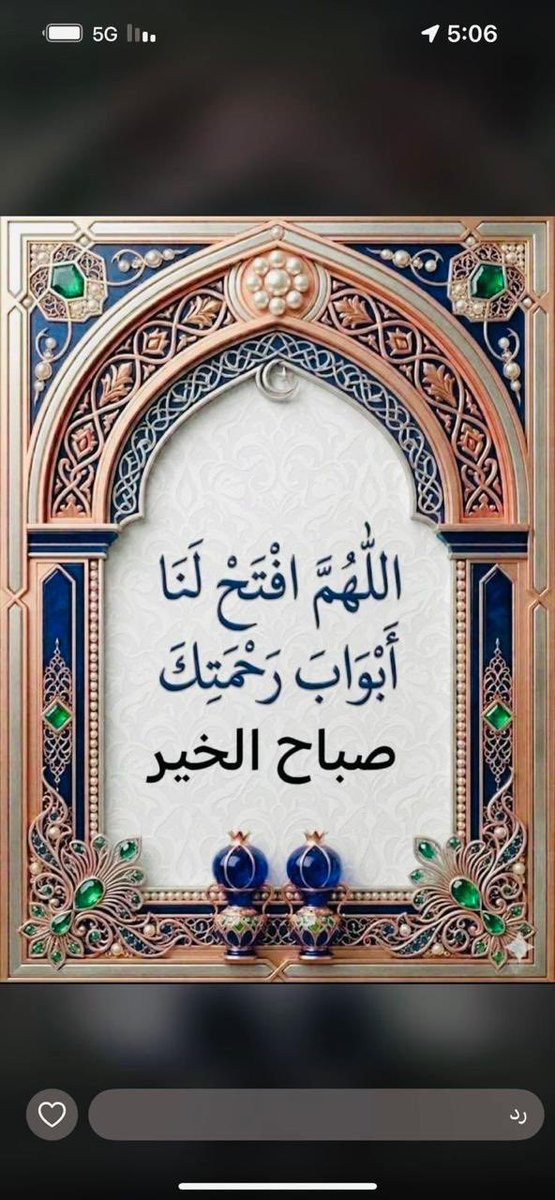 5G 5:06
اللّٰهُمَّ افْتَحْ لَنَا
أَبْوَابَ رَحْمَتِكَ
صباح الخير
رد